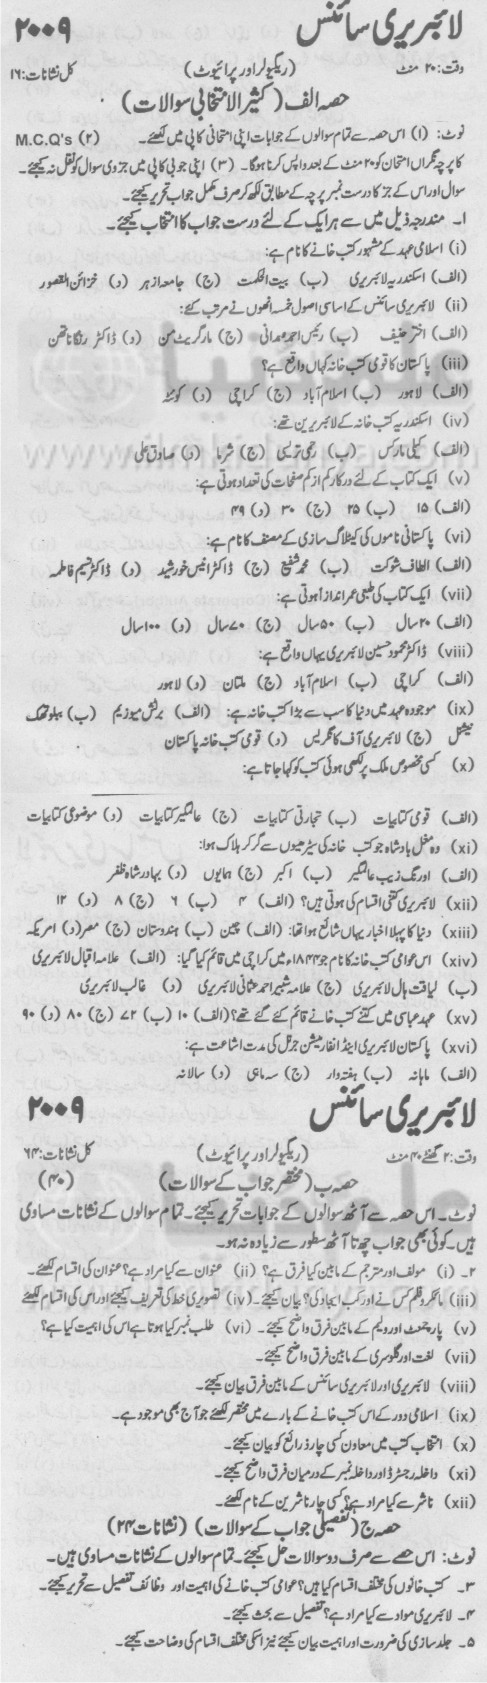 لائبریری سائنس ۲۰۰۹
وقت: ۲۰ منٹ (ریگولر اور پرائیوٹ) کل نشانات: ۱۶
حصہ الف (کثیر الانتخابی سوالات)
نوٹ: (۱) اس حصہ سے تمام سوالوں کے جوابات اپنی امتحانی کاپی میں لکھئے۔ (۲) M.C.Q's
کا پرچہ نگراں امتحان کو ۲۰ منٹ کے بعد واپس کرنا ہوگا۔ (۳) اپنی جوابی کاپی میں جزوی سوال کو نقل نہ کیجئے۔
سوال اور اس کے جز کا درست نمبر پرچہ کے مطابق لکھ کر صرف مکمل جواب تحریر کیجئے۔
۱۔ مندرجہ ذیل میں سے ہر ایک کے لئے درست جواب کا انتخاب کیجئے۔
(i) اسلامی عہد کے مشہور کتب خانے کا نام ہے:
(الف) اسکندریہ لائبریری (ب) بیت الحکمت (ج) جامعہ ازہر (د) خزائن القصور
(ii) لائبریری سائنس کے اساسی اصول خمسہ انھوں نے مرتب کئے:
(الف) اختر حنیف (ب) رئیس احمد صمدانی (ج) مارگریٹ مین (د) ڈاکٹر رنگاناتھن
(iii) پاکستان کا قومی کتب خانہ کہاں واقع ہے؟
(الف) لاہور (ب) اسلام آباد (ج) کراچی (د) کوئٹہ
(iv) اسکندریہ کتب خانہ کے لائبریرین تھے:
(الف) کیلی مارکس (ب) (ج) شرما (د) صادق علی
(v) ایک کتاب کے لئے درکار کم از کم صفحات کی تعداد ہوتی ہے:
(الف) ۱۵ (ب) ۲۵ (ج) ۳۰ (د) ۴۹
(vi) پاکستانی ناموں کی کیٹلاگ سازی کے مصنف کا نام ہے:
(الف) الطاف شوکت (ب) محمد شفیع (ج) ڈاکٹر انیس خورشید (د) ڈاکٹر نسیم فاطمہ
(vii) ایک کتاب کی طبعی عمر اندازاً ہوتی ہے:
(الف) ۲۰ سال (ب) ۵۰ سال (ج) ۷۰ سال (د) ۱۰۰ سال
(viii) ڈاکٹر محمود حسین لائبریری یہاں واقع ہے:
(الف) کراچی (ب) اسلام آباد (ج) ملتان (د) لاہور
(ix) موجودہ عہد میں دنیا کا سب سے بڑا کتب خانہ ہے: (الف) برٹش میوزیم (ب) ببلوتھک
نیشنل (ج) لائبریری آف کانگریس (د) قومی کتب خانہ پاکستان
(x) کسی مخصوص ملک پر لکھی ہوئی کتب کو کہا جاتا ہے:
(الف) قومی کتابیات (ب) تجارتی کتابیات (ج) عالمگیر کتابیات (د) موضوعی کتابیات
(xi) وہ مغل بادشاہ جو کتب خانہ کی سیڑھیوں سے گر کر ہلاک ہوا:
(الف) اورنگ زیب عالمگیر (ب) اکبر (ج) ہمایوں (د) بہادر شاہ ظفر
(xii) لائبریری کتنی اقسام کی ہوتی ہیں؟ (الف) ۴ (ب) ۶ (ج) ۸ (د) ۱۲
(xiii) دنیا کا پہلا اخبار یہاں شائع ہوا تھا: (الف) چین (ب) ہندوستان (ج) مصر (د) امریکہ
(xiv) اس عوامی کتب خانہ کا نام جو ۱۸۴۴ء میں کراچی میں قائم کیا گیا: (الف) علامہ اقبال لائبریری
(ب) لیاقت ہال لائبریری (ج) علامہ شبیر احمد عثمانی لائبریری (د) غالب لائبریری
(xv) عہد عباسی میں کتنے کتب خانے قائم کئے گئے تھے؟ (الف) ۱۰ (ب) ۷۲ (ج) ۸۰ (د) ۹۰
(xvi) پاکستان لائبریری اینڈ انفارمیشن جرنل کی مدت اشاعت ہے:
(الف) ماہانہ (ب) ہفتہ وار (ج) سہ ماہی (د) سالانہ
لائبریری سائنس ۲۰۰۹
وقت: ۲ گھنٹے ۴۰ منٹ (ریگولر اور پرائیوٹ) کل نشانات: ۶۴
حصہ ب (مختصر جواب کے سوالات) (۴۰)
نوٹ۔ اس حصہ سے آٹھ سوالوں کے جوابات تحریر کیجئے۔ تمام سوالوں کے نشانات مساوی
ہیں۔ کوئی بھی جواب چھ تا آٹھ سطور سے زیادہ نہ ہو۔
۲۔ (i) مولف اور مترجم کے مابین کیا فرق ہے؟ (ii) عنوان سے کیا مراد ہے؟ عنوان کی اقسام لکھئے۔
(iii) مائکروفلم کس نے اور کب ایجاد کی؟ بیان کیجئے۔ (iv) تصویری خط کی تعریف کیجئے اور اس کی اقسام لکھئے
(v) پارچمنٹ اور ویلم کے مابین فرق واضح کیجئے۔ (vi) طلب نمبر کیا ہوتا ہے اس کی اہمیت کیا ہے؟
(vii) لغت اور گلوسری کے مابین فرق واضح کیجئے۔
(viii) لائبریری اور لائبریری سائنس کے مابین فرق بیان کیجئے۔
(ix) اسلامی دور کے اس کتب خانے کے بارے میں مختصر لکھئے جو آج بھی موجود ہے۔
(x) انتخاب کتب میں معاون کسی چار ذرائع کو بیان کیجئے۔
(xi) داخلہ رجسٹر اور داخلہ نمبر کے درمیان فرق واضح کیجئے۔
(xii) ناشر سے کیا مراد ہے؟ کسی چار ناشرین کے نام لکھئے۔
حصہ ج (تفصیلی جواب کے سوالات) (نشانات ۲۴)
نوٹ: اس حصے سے صرف دو سوالات حل کیجئے۔ تمام سوالوں کے نشانات مساوی ہیں۔
۳۔ کتب خانوں کی مختلف اقسام کیا ہیں؟ عوامی کتب خانے کی اہمیت اور وظائف تفصیل سے تحریر کیجئے۔
۴۔ لائبریری مواد سے کیا مراد ہے؟ تفصیل سے بحث کیجئے۔
۵۔ جلد سازی کی ضرورت اور اہمیت بیان کیجئے نیز اسکی مختلف اقسام کی وضاحت کیجئے۔